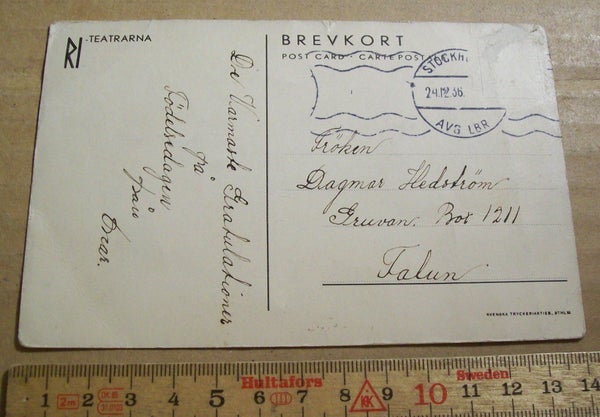 RI -TEATRARNA
De Varmaste Gratulationer
på
Födelsedagen
från
Evar.
BREVKORT
POST CARD · CARTE POST
STOCKH
24.12.36.
AVG LBR
Fröken
Dagmar Hedström
Gruvan. Box 1211
Falun
SVENSKA TRYCKERIAKTIEB. STHLM
Hultafors
Sweden
1 2 3 4 5 6 7 8 9 10 11 12 13 14
2m
KK